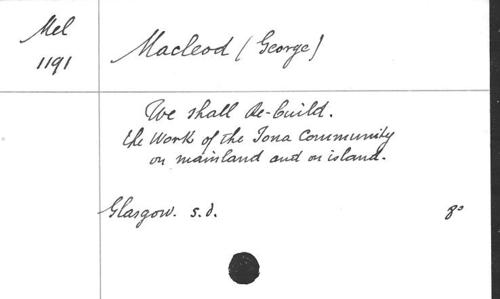 Mel
1191
Macleod (George)
We shall Re-build.
the Work of the Iona Community
on mainland and on island.
Glasgow. s.d. 8°